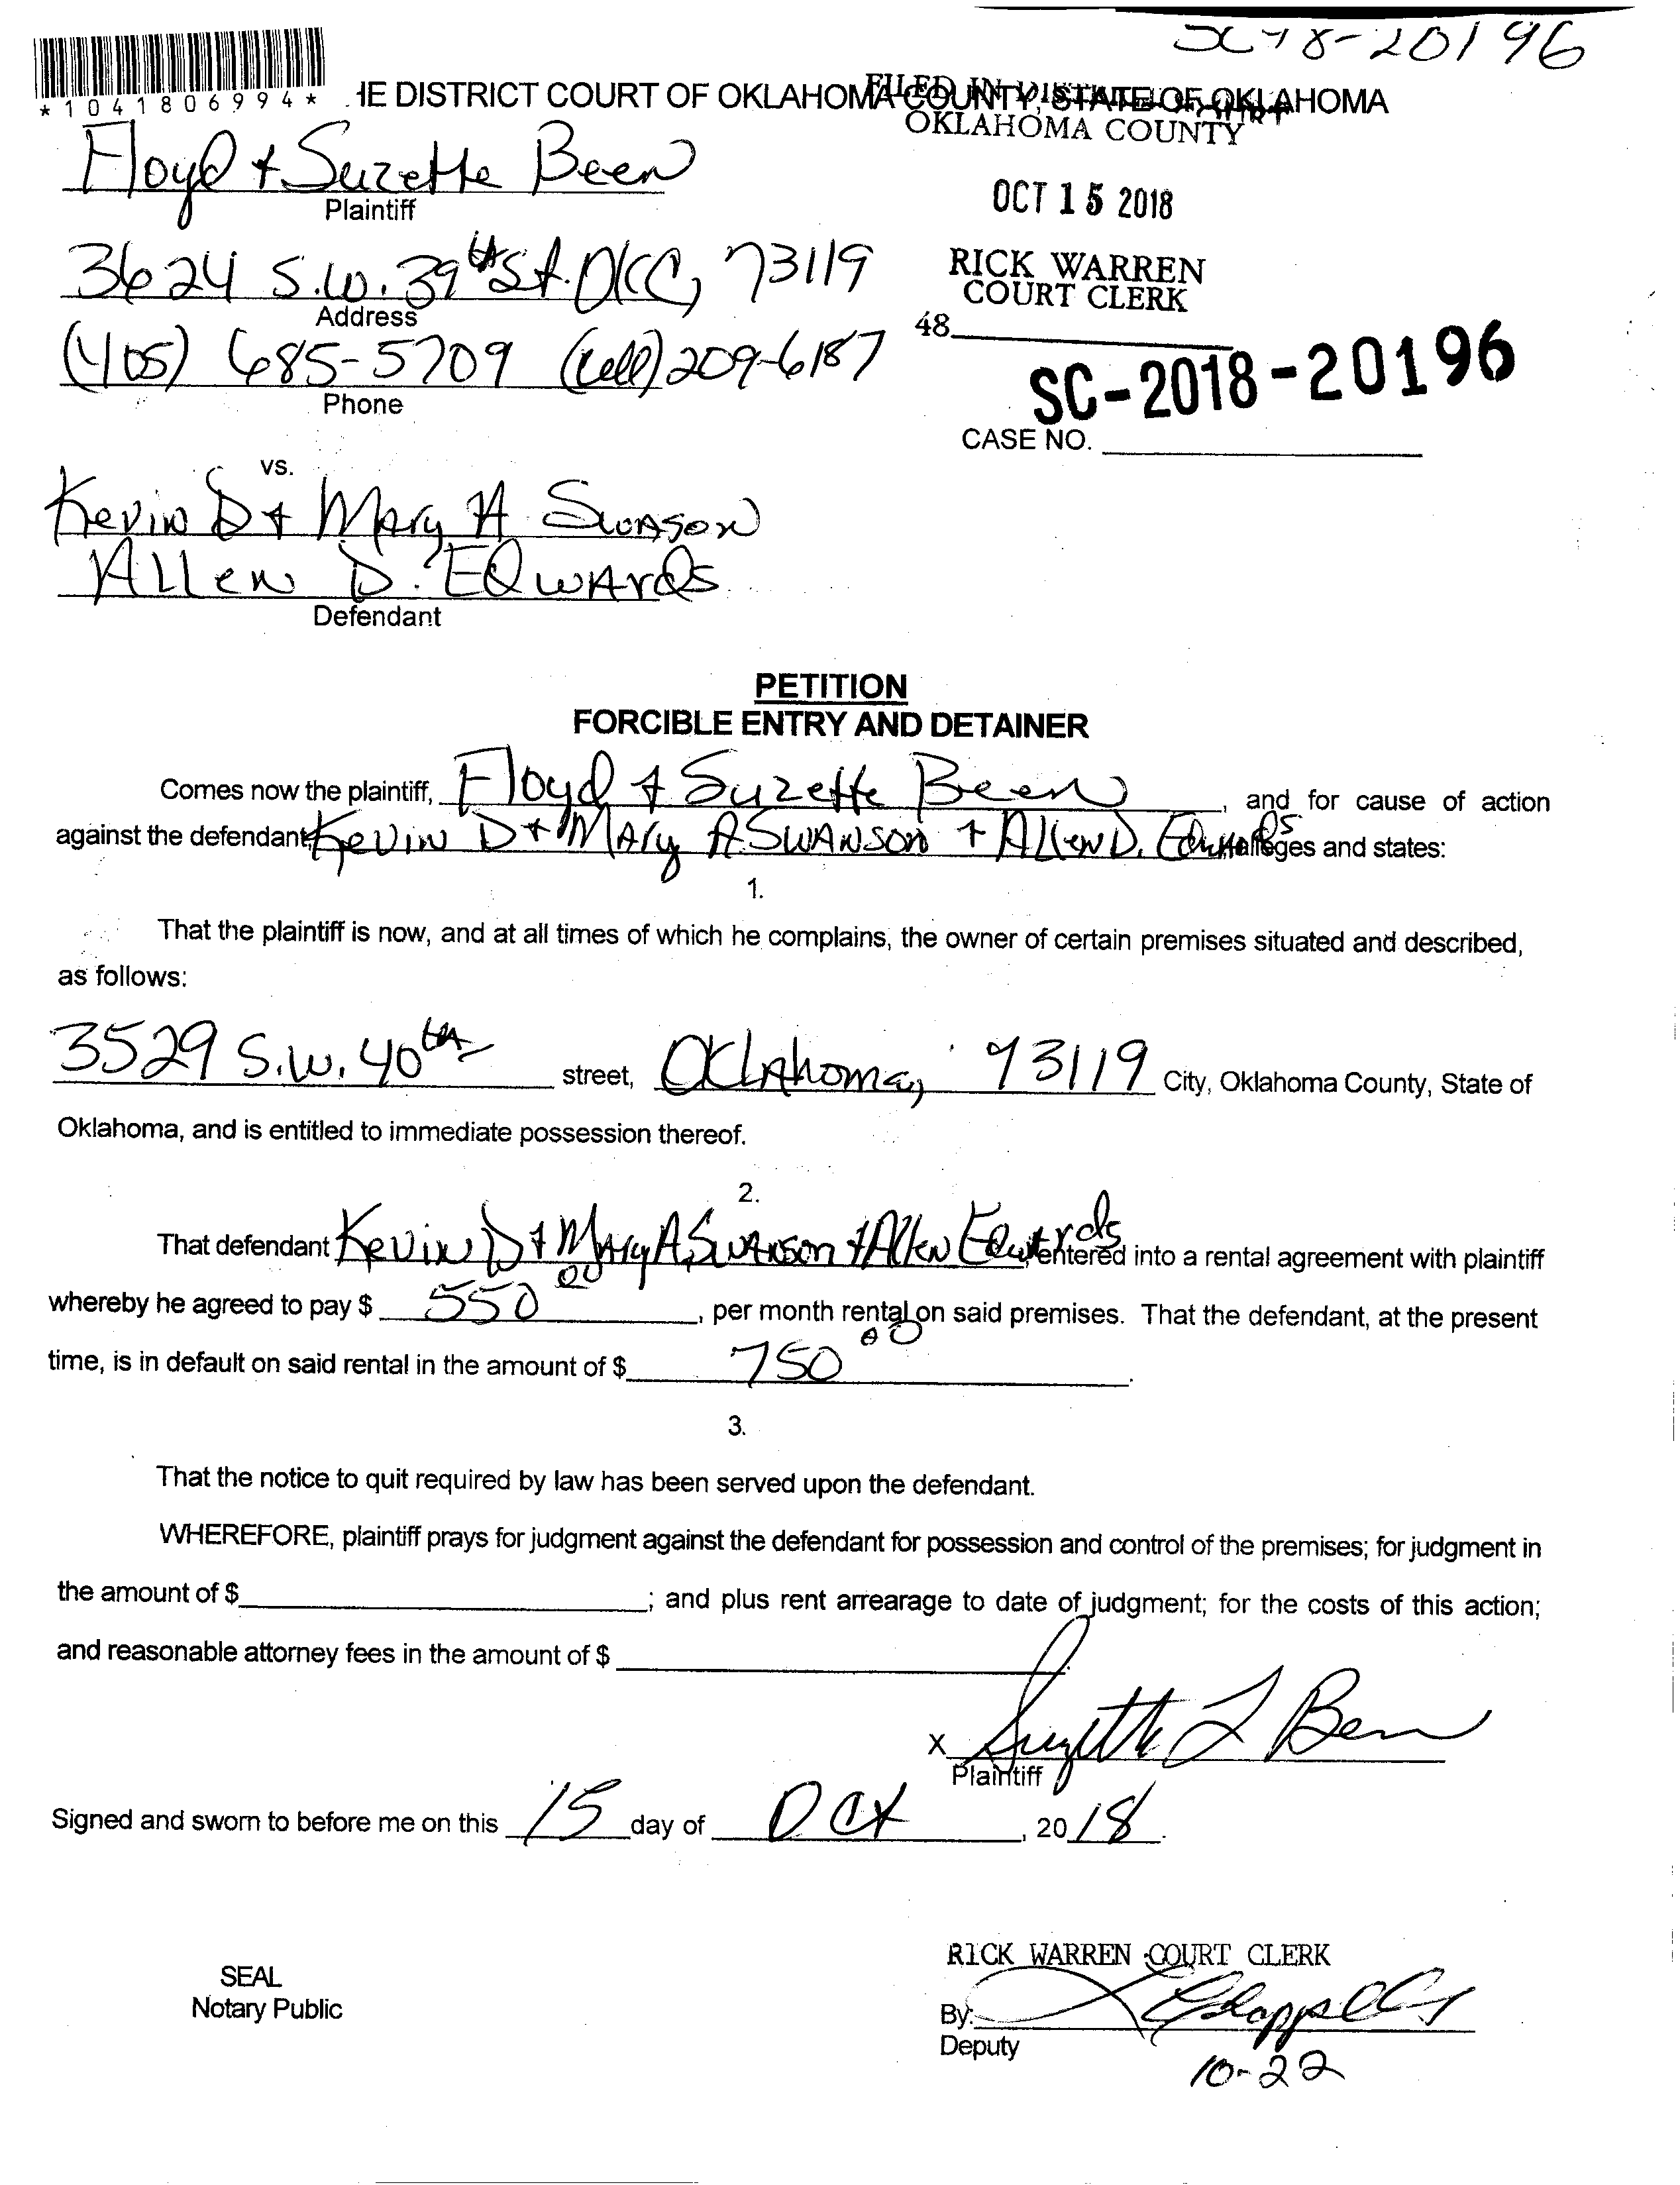 SC-18-20196
*1041806994*
HE DISTRICT COURT OF OKLAHOMA COUNTY, STATE OF OKLAHOMA
FILED IN DISTRICT COURT
OKLAHOMA COUNTY
Floyd + Suzette Been
Plaintiff
OCT 15 2018
3624 S.W. 39th St. OKC, 73119
Address
RICK WARREN
COURT CLERK
48
(405) 685-5709 (cell) 209-6187
Phone
SC-2018-20196
CASE NO.
vs.
Kevin D + Mary A Swanson
Allen D. Edwards
Defendant
PETITION
FORCIBLE ENTRY AND DETAINER
Comes now the plaintiff, Floyd + Suzette Been, and for cause of action
against the defendant, Kevin D + Mary A Swanson + Allen D. Edwards alleges and states:
1.
That the plaintiff is now, and at all times of which he complains, the owner of certain premises situated and described,
as follows:
3529 S.W. 40th street, Oklahoma, 73119 City, Oklahoma County, State of
Oklahoma, and is entitled to immediate possession thereof.
2.
That defendant Kevin D + Mary A Swanson + Allen Edwards, entered into a rental agreement with plaintiff
whereby he agreed to pay $ 550 00, per month rental on said premises. That the defendant, at the present
time, is in default on said rental in the amount of $ 750 00.
3.
That the notice to quit required by law has been served upon the defendant.
WHEREFORE, plaintiff prays for judgment against the defendant for possession and control of the premises; for judgment in
the amount of $ ; and plus rent arrearage to date of judgment; for the costs of this action;
and reasonable attorney fees in the amount of $ .
X Suzette L Been
Plaintiff
Signed and sworn to before me on this 15 day of Oct, 2018.
RICK WARREN COURT CLERK
SEAL
Notary Public
By:
Deputy
10-22